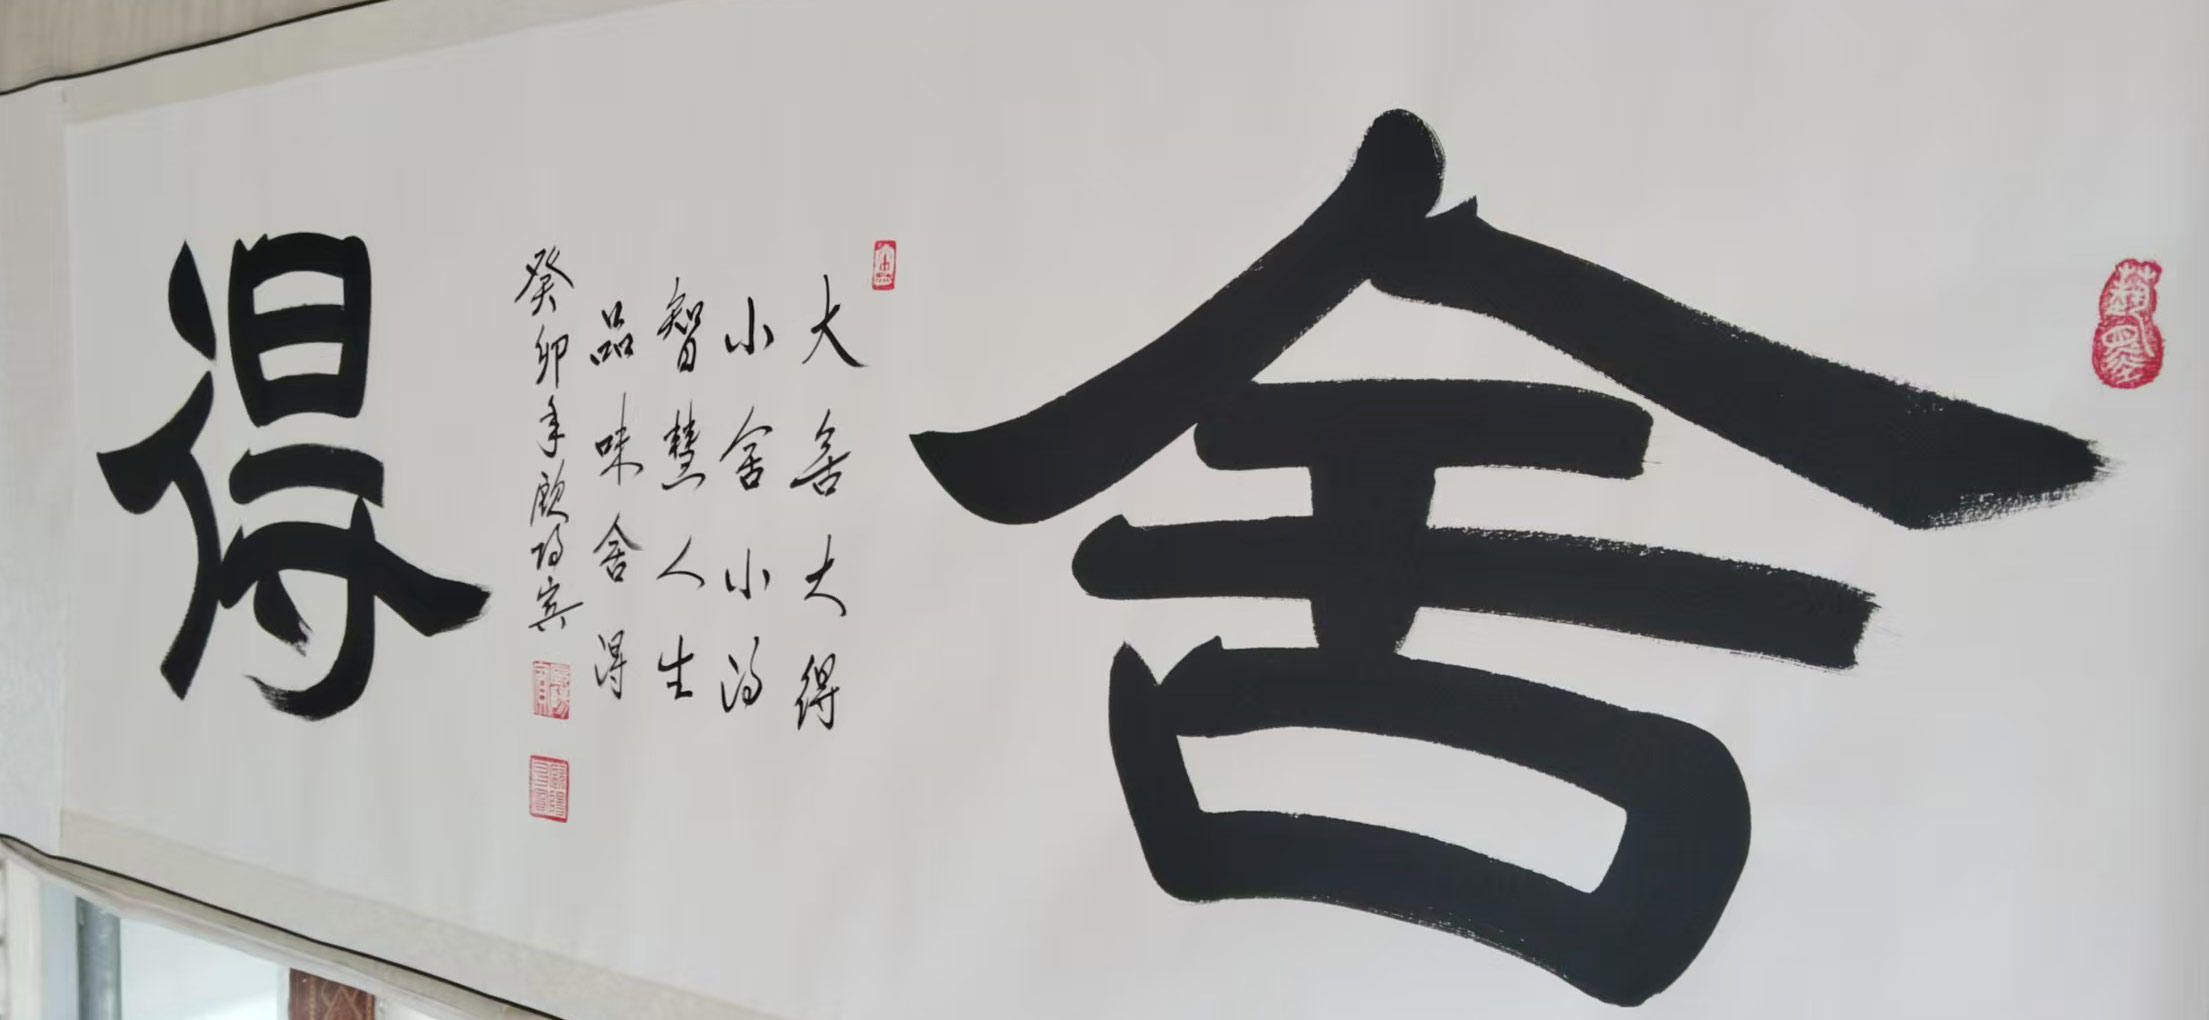 舍
大舍大得
小舍小得
智慧人生
品味舍得
癸卯年
得